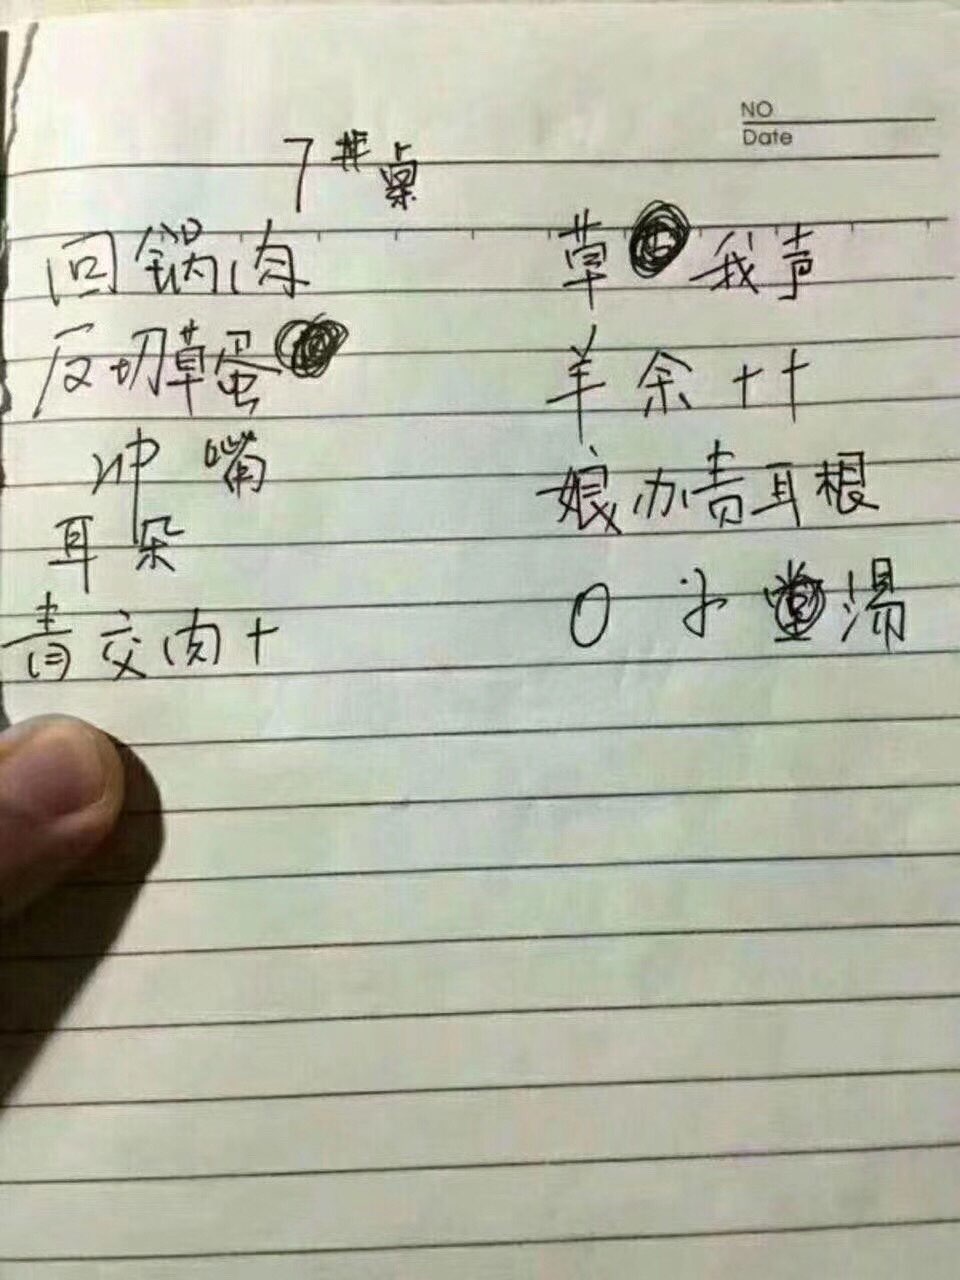 NO
Date
7 桌
回锅肉
反切草蛋
冲嘴
耳朵
青交肉十
草 我声
羊余十十
娘办责耳根
0 汤